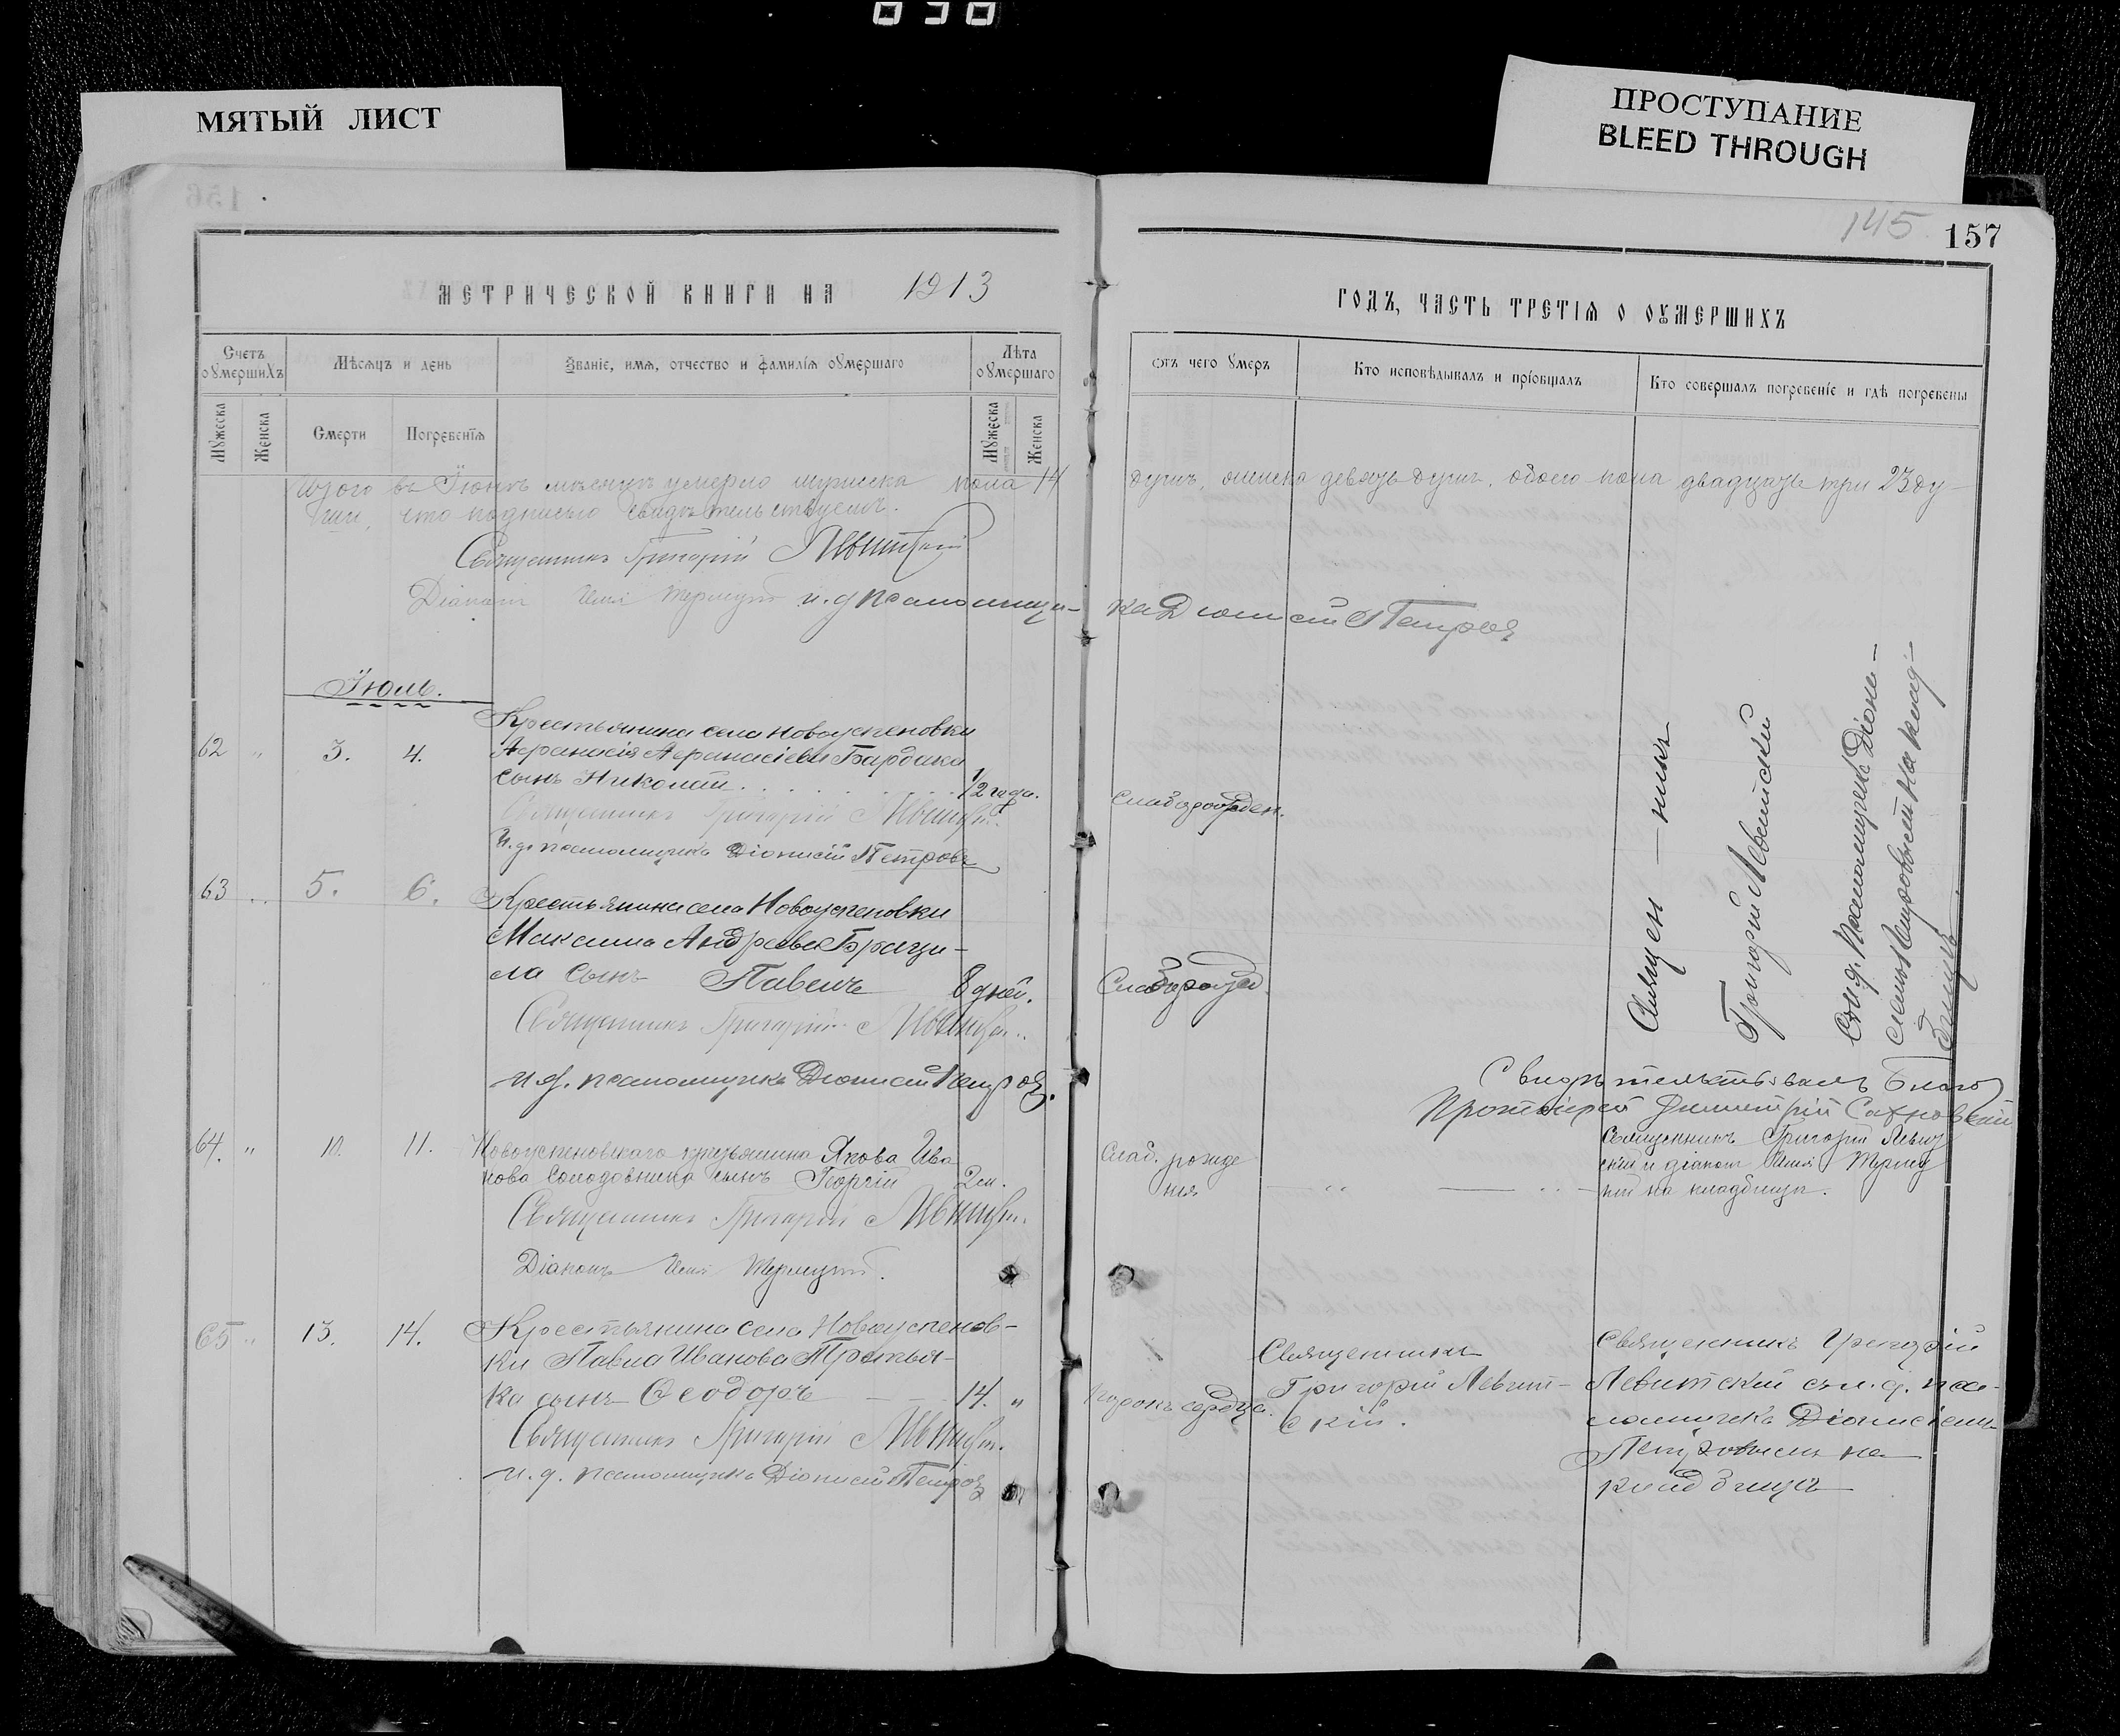 030
МЯТЫЙ ЛИСТ
ПРОСТУПАНИЕ
BLEED THROUGH
145
157
МЕТРИЧЕСКОЙ КНИГИ НА 1913
Счетъ оумершихъ
Мѣсяцъ и день
Званіе, имя, отчество и фамилія оумершаго
Лѣта оумершаго
Мужеска
Женска
Смерти
Погребенія
Мужеска
Женска
ГОДЪ, ЧАСТЬ ТРЕТІЯ О ОУМЕРШИХЪ
Отъ чего умеръ
Кто исповѣдывалъ и пріобщалъ
Кто совершалъ погребеніе и гдѣ погребены
Итого въ Іюнѣ мѣсяцѣ умерло мужеска пола 14 душъ, женска девять душъ, обоего пола двадцать три 23 ду-
ши, что подписью свидѣтельствуемъ.
Священникъ Григорій Левитскій
Діаконъ Илія и. д. псаломщи- ка Діонисій Петровъ
Іюль.
62 " 3. 4.
Крестьянина села Новоуспеновки
Афанасія Афанасіева Бардака
сынъ Николай 1/2 года.
Слаборожден.
Священникъ Григорій Левитскій
И. д. псаломщика Діонисій Петровъ
63 " 5. 6.
Крестьянина села Новоуспеновки
Максима Андреева Браги-
ла сынъ Павелъ 8 дней.
Слаборожд.
Священникъ Григорій Левитскій
И. д. псаломщика Діонисій Петровъ.
Священ — никъ
Григорій Левитскій
съ и. д. псаломщика Діони-
сіемъ Петровымъ на клад-
бищѣ.
Свидѣтельствовалъ Благо
Протоіерей Димитрій
64. " 10. 11.
Новоуспеновскаго крестьянина Якова Ива
нова Солодовника сынъ Георгій 2 м.
Слаб. рожде
нія
Священникъ Григорій Левит
скій и діаконъ Илія
на кладбищѣ.
Священникъ Григорій Левитскій
Діаконъ Илія
65 " 13. 14.
Крестьянина села Новоуспенов-
ки Павла Иванова Третья-
ка сынъ Ѳеодоръ 14. "
Порокъ сердца.
Священникъ
Григорій Левит-
скій.
Священникъ Григорій
Левитскій съ и. д. пса-
ломщика Діонисіемъ
Петровымъ на
кладбищѣ
Священникъ Григорій Левитскій
И. д. псаломщика Діонисій Петровъ